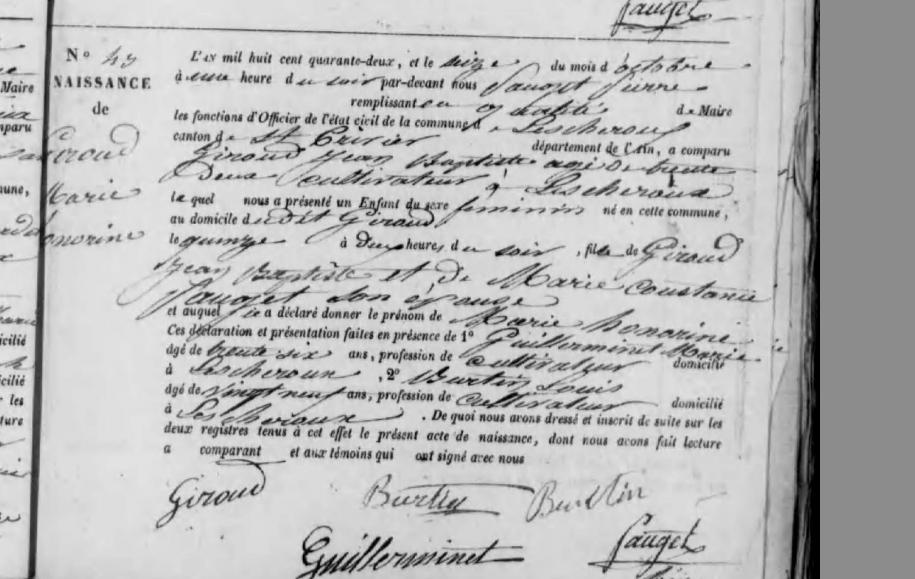 Sauget
N° 43
NAISSANCE
de
Giroud
Marie
honorine
L'AN mil huit cent quarante-deux, et le seize du mois d'octobre
à une heure du soir par-devant nous Sauget Pierre
remplissant en qualité de Maire
les fonctions d'Officier de l'état civil de la commune de Lescheroux
canton de St Trivier département de l'Ain, a comparu
Giroud Jean Baptiste agé de trente
deux cultivateur à Lescheroux
lequel nous a présenté un Enfant du sexe feminin né en cette commune,
au domicile dudit Giroud
le quinze à deux heures du soir, fille de Giroud
Jean Baptiste et de Marie Constance
Sauget son epouse
et auquel il a déclaré donner le prénom de Marie honorine
Ces déclaration et présentation faites en présence de 1° Guillerminet Marie
âgé de trente six ans, profession de cultivateur domicilié
à Lescheroux, 2° Burtin Louis
âgé de vingt neuf ans, profession de cultivateur domicilié
à Lescheroux. De quoi nous avons dressé et inscrit de suite sur les
deux registres tenus à cet effet le présent acte de naissance, dont nous avons fait lecture
a comparant et aux témoins qui ont signé avec nous
Giroud Burtin
Guillerminet Sauget
Maire
mparu
mune,
icilié
icilié
r les
cture